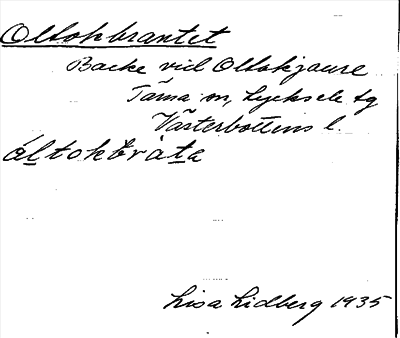 Oltokbrantet
Backe vid Oltokjaure
Tärna sn, Lycksele tg
Västerbottens l.
áltokbràta
Lisa Lidberg 1935